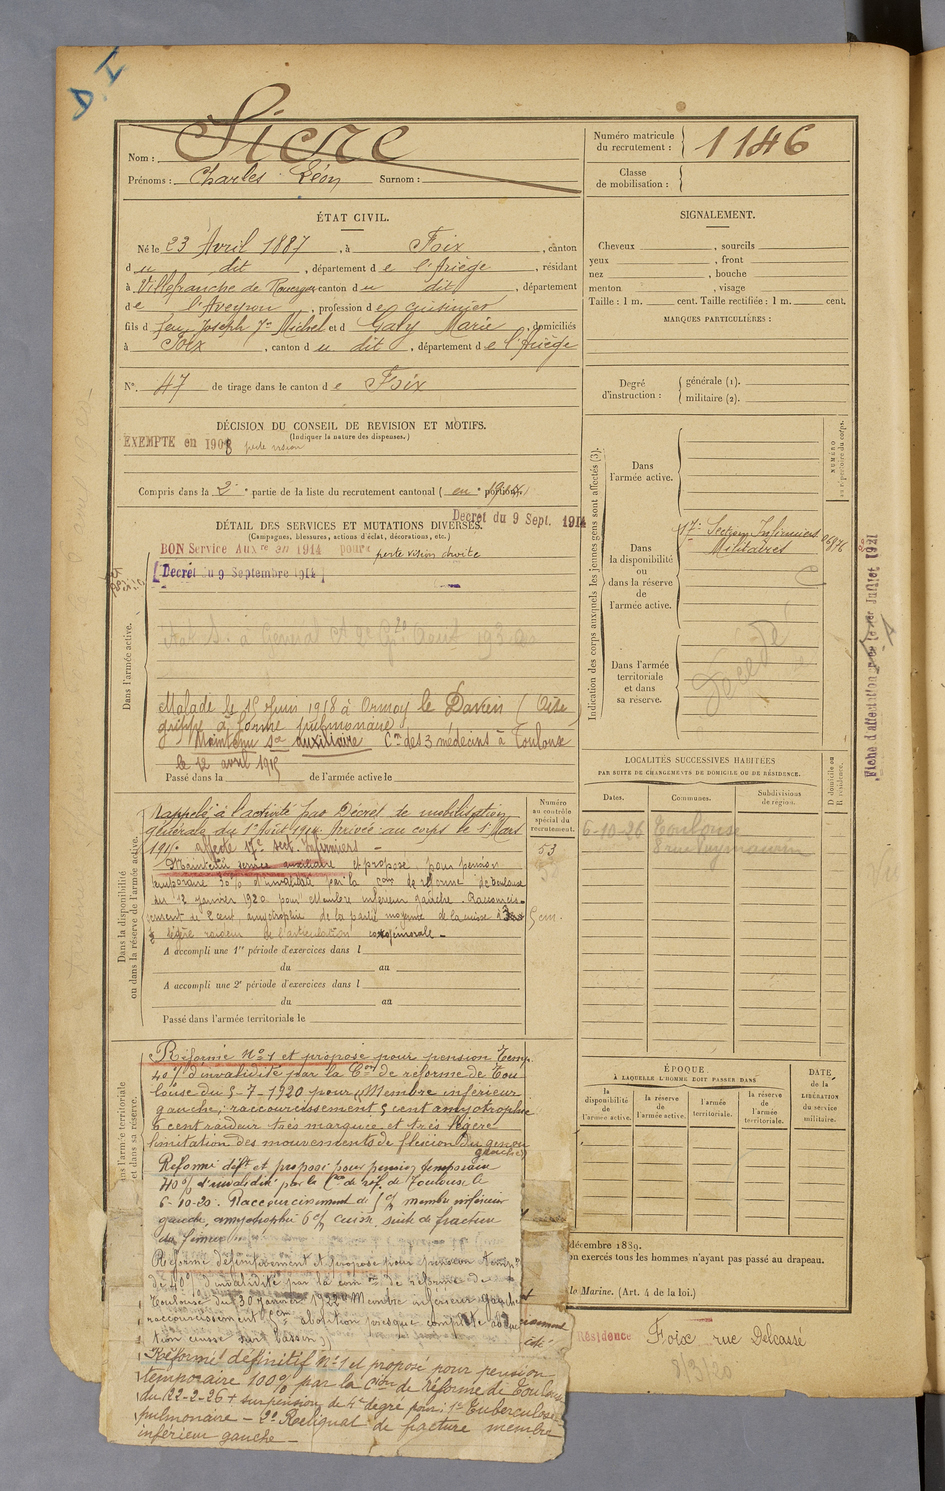 D. I
Nom : Sicre
Prénoms : Charles Léon Surnom :
Numéro matricule du recrutement : 1146
Classe de mobilisation :
ÉTAT CIVIL.
Né le 23 Avril 1887, à Foix, canton
du dit, département de l'Ariège, résidant
à Villefranche de Rouergue canton du dit, département
de l'Aveyron, profession de cuisinier
fils de feu Joseph Jn Michel et de Galy Marie, domiciliés
à Foix, canton du dit, département de l'Ariège
N°. 47 de tirage dans le canton de Foix
SIGNALEMENT.
Cheveux , sourcils
yeux , front
nez , bouche
menton , visage
Taille : 1 m. cent. Taille rectifiée : 1 m. cent.
MARQUES PARTICULIÈRES :
Degré d'instruction : générale (1). militaire (2).
DÉCISION DU CONSEIL DE REVISION ET MOTIFS.
(Indiquer la nature des dispenses.)
EXEMPTÉ en 1908 perte vision
Compris dans la 2e partie de la liste du recrutement cantonal ( en portion).
Decret du 9 Sept. 1914
DÉTAIL DES SERVICES ET MUTATIONS DIVERSES.
(Campagnes, blessures, actions d'éclat, décorations, etc.)
BON Service Auxre en 1914 pour perte vision droite
[Decret du 9 Septembre 1914]
Dans l'armée active.
Malade le 15 Juin 1918 à Ormoy le Davien (Oise
grippe à forme pulmonaire
Maintenu sce auxiliaire Con des 3 médecins à Toulouse
le 12 avril 1915
Passé dans la de l'armée active le
Indication des corps auxquels les jeunes gens sont affectés (3).
NUMÉRO au répertoire du corps.
Dans l'armée active.
Dans la disponibilité ou dans la réserve de l'armée active.
17e Section Infirmiers
Militaires
Dans l'armée territoriale et dans sa réserve.
Fiche d'affectation
Juillet 1921
Dans la disponibilité ou dans la réserve de l'armée active.
Numéro au contrôle spécial du recrutement.
53
Rappelé à l'activité par Décret de mobilisation
générale du 1er Août 1914. Arrivé au corps le 1er Mars
affecté 17e sect. Infirmiers -
Maintenu service auxiliaire et proposé pour pension
temporaire 30% d'invalidité par la com de réforme de Toulouse
du 12 Janvier 1920 pour Membre inférieur gauche. Raccourcis-
sement de 2 cent, amyotrophie de la partie moyenne de la cuisse
légère raideur de l'articulation coxofémorale -
A accompli une 1re période d'exercices dans l
du au
A accompli une 2e période d'exercices dans l
du au
Passé dans l'armée territoriale le
LOCALITÉS SUCCESSIVES HABITÉES
PAR SUITE DE CHANGEMENTS DE DOMICILE OU DE RÉSIDENCE.
Dates. Communes. Subdivisions de région. D domicile ou R résidence.
6-10-26 Toulouse
ÉPOQUE
À LAQUELLE L'HOMME DOIT PASSER DANS
la disponibilité de l'armée active. la réserve de l'armée active. l'armée territoriale. la réserve de l'armée territoriale.
DATE de la LIBÉRATION du service militaire.
Réformé N°1 et proposé pour pension temp.
40% d'invalidité par la Con de réforme de Tou-
louse du 5-7-1920 pour "Membre inférieur
gauche, raccourcissement 5 cent amyotrophie
6 cent raideur très marquée et très légère
limitation des mouvements de flexion du genou
gauche"
Réformé déft et proposé pour pension temporaire
40% d'invalidité par la Con de réf. de Toulouse le
6-10-20. Raccourcissement de 5 c/ membre inférieur
gauche, amyotrophie 6 c/ cuisse suite de fracture
du fémur
Réformé définitivement et proposé pour pension temp
de 40% d'invalidité par la com on de réforme de
Toulouse du 30 Janvier 1922 Membre inférieur gauche
raccourcissement 5 cm abolition presque complète
tion cuisse sur bassin
Réformé définitif N°1 et proposé pour pension
temporaire 100% par la Cion de Réforme de Toulouse
du 22-2-26 + surpension de 1er degré pour : 1° Tuberculose
pulmonaire - 2° Reliquat de fracture membre
inférieur gauche -
décembre 1889.
on exercés tous les hommes n'ayant pas passé au drapeau.
la Marine. (Art. 4 de la loi.)
Résidence Foix rue Delcassé
8/3/20